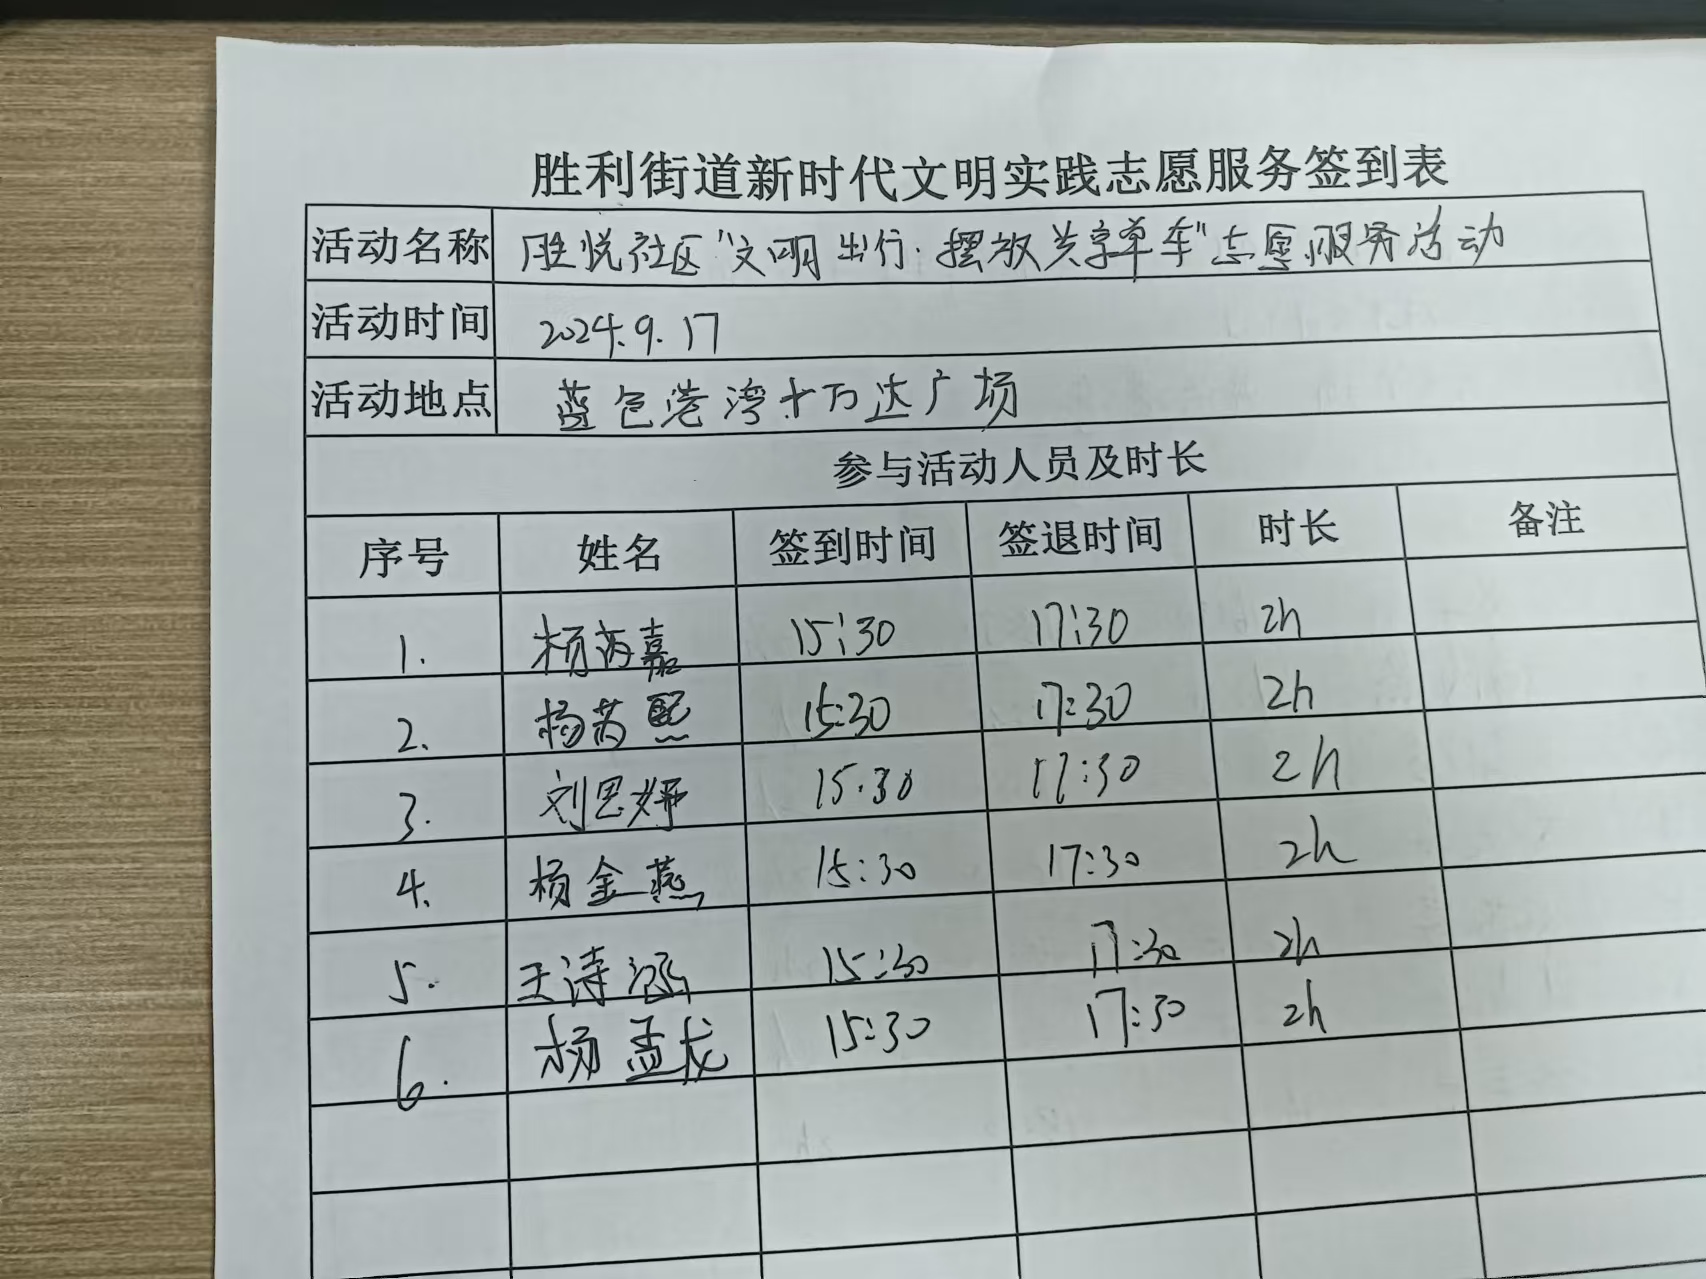 胜利街道新时代文明实践志愿服务签到表
活动名称 胜悦社区“文明出行·摆放共享单车”志愿服务活动
活动时间 2024.9.17
活动地点 蓝色港湾+万达广场
参与活动人员及时长
序号 姓名 签到时间 签退时间 时长 备注
1. 杨芮嘉 15:30 17:30 2h
2. 杨芮熙 15:30 17:30 2h
3. 刘思妍 15:30 17:30 2h
4. 杨金燕 15:30 17:30 2h
5. 王诗涵 15:30 17:30 2h
6. 杨孟龙 15:30 17:30 2h